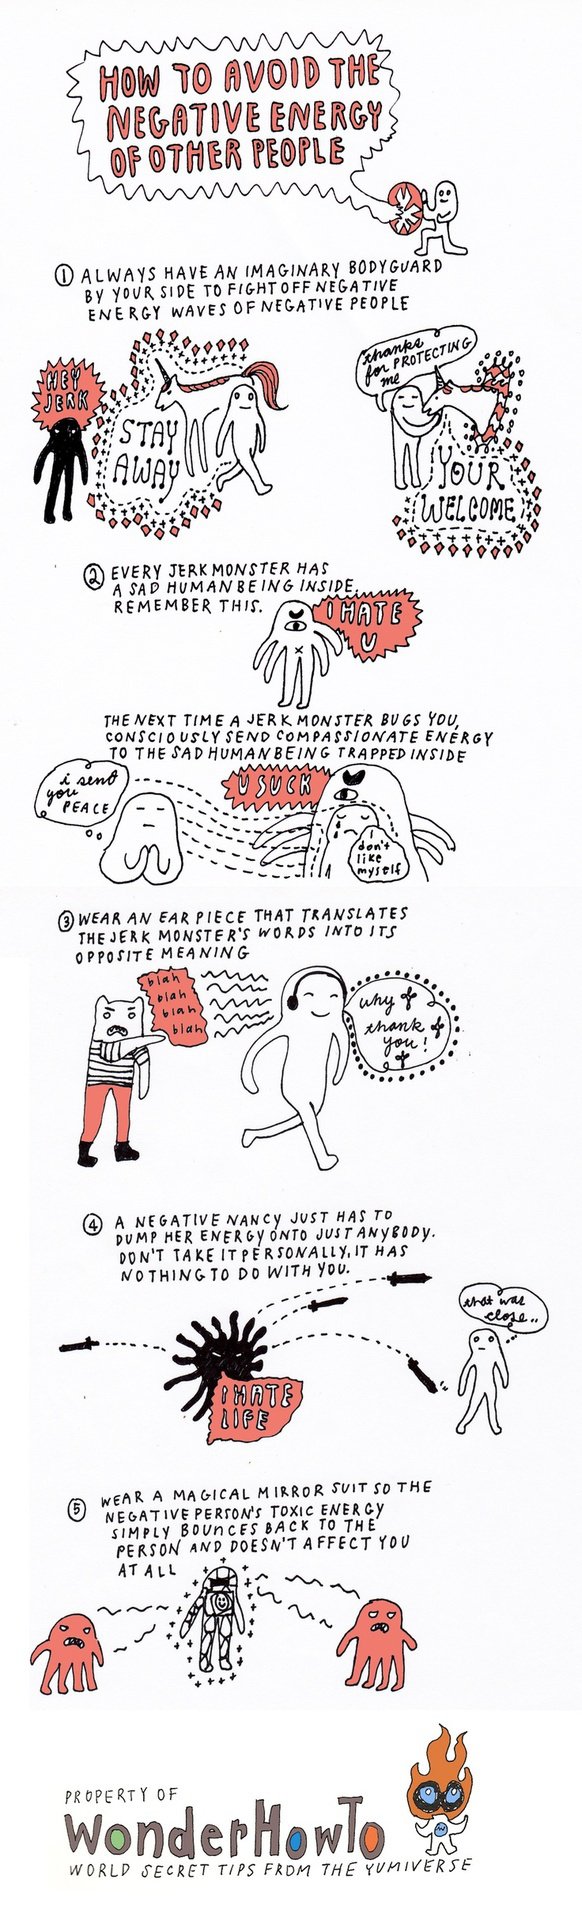 HOW TO AVOID THE
NEGATIVE ENERGY
OF OTHER PEOPLE
① ALWAYS HAVE AN IMAGINARY BODYGUARD
BY YOUR SIDE TO FIGHT OFF NEGATIVE
ENERGY WAVES OF NEGATIVE PEOPLE
HEY
JERK
STAY
AWAY
thanks
for PROTECTING
me
YOUR
WELCOME
② EVERY JERK MONSTER HAS
A SAD HUMAN BEING INSIDE.
REMEMBER THIS.
I HATE
U
THE NEXT TIME A JERK MONSTER BUGS YOU,
CONSCIOUSLY SEND COMPASSIONATE ENERGY
TO THE SAD HUMAN BEING TRAPPED INSIDE
i send
you
PEACE
U SUCK
I
don't
like
myself
③ WEAR AN EAR PIECE THAT TRANSLATES
THE JERK MONSTER'S WORDS INTO ITS
OPPOSITE MEANING
blah
blah
blah
blah
why
thank
you!
④ A NEGATIVE NANCY JUST HAS TO
DUMP HER ENERGY ONTO JUST ANYBODY.
DON'T TAKE IT PERSONALLY, IT HAS
NOTHING TO DO WITH YOU.
that was
close..
I HATE
LIFE
⑤ WEAR A MAGICAL MIRROR SUIT SO THE
NEGATIVE PERSON'S TOXIC ENERGY
SIMPLY BOUNCES BACK TO THE
PERSON AND DOESN'T AFFECT YOU
AT ALL
PROPERTY OF
WonderHowTo
WORLD SECRET TIPS FROM THE YUMIVERSE